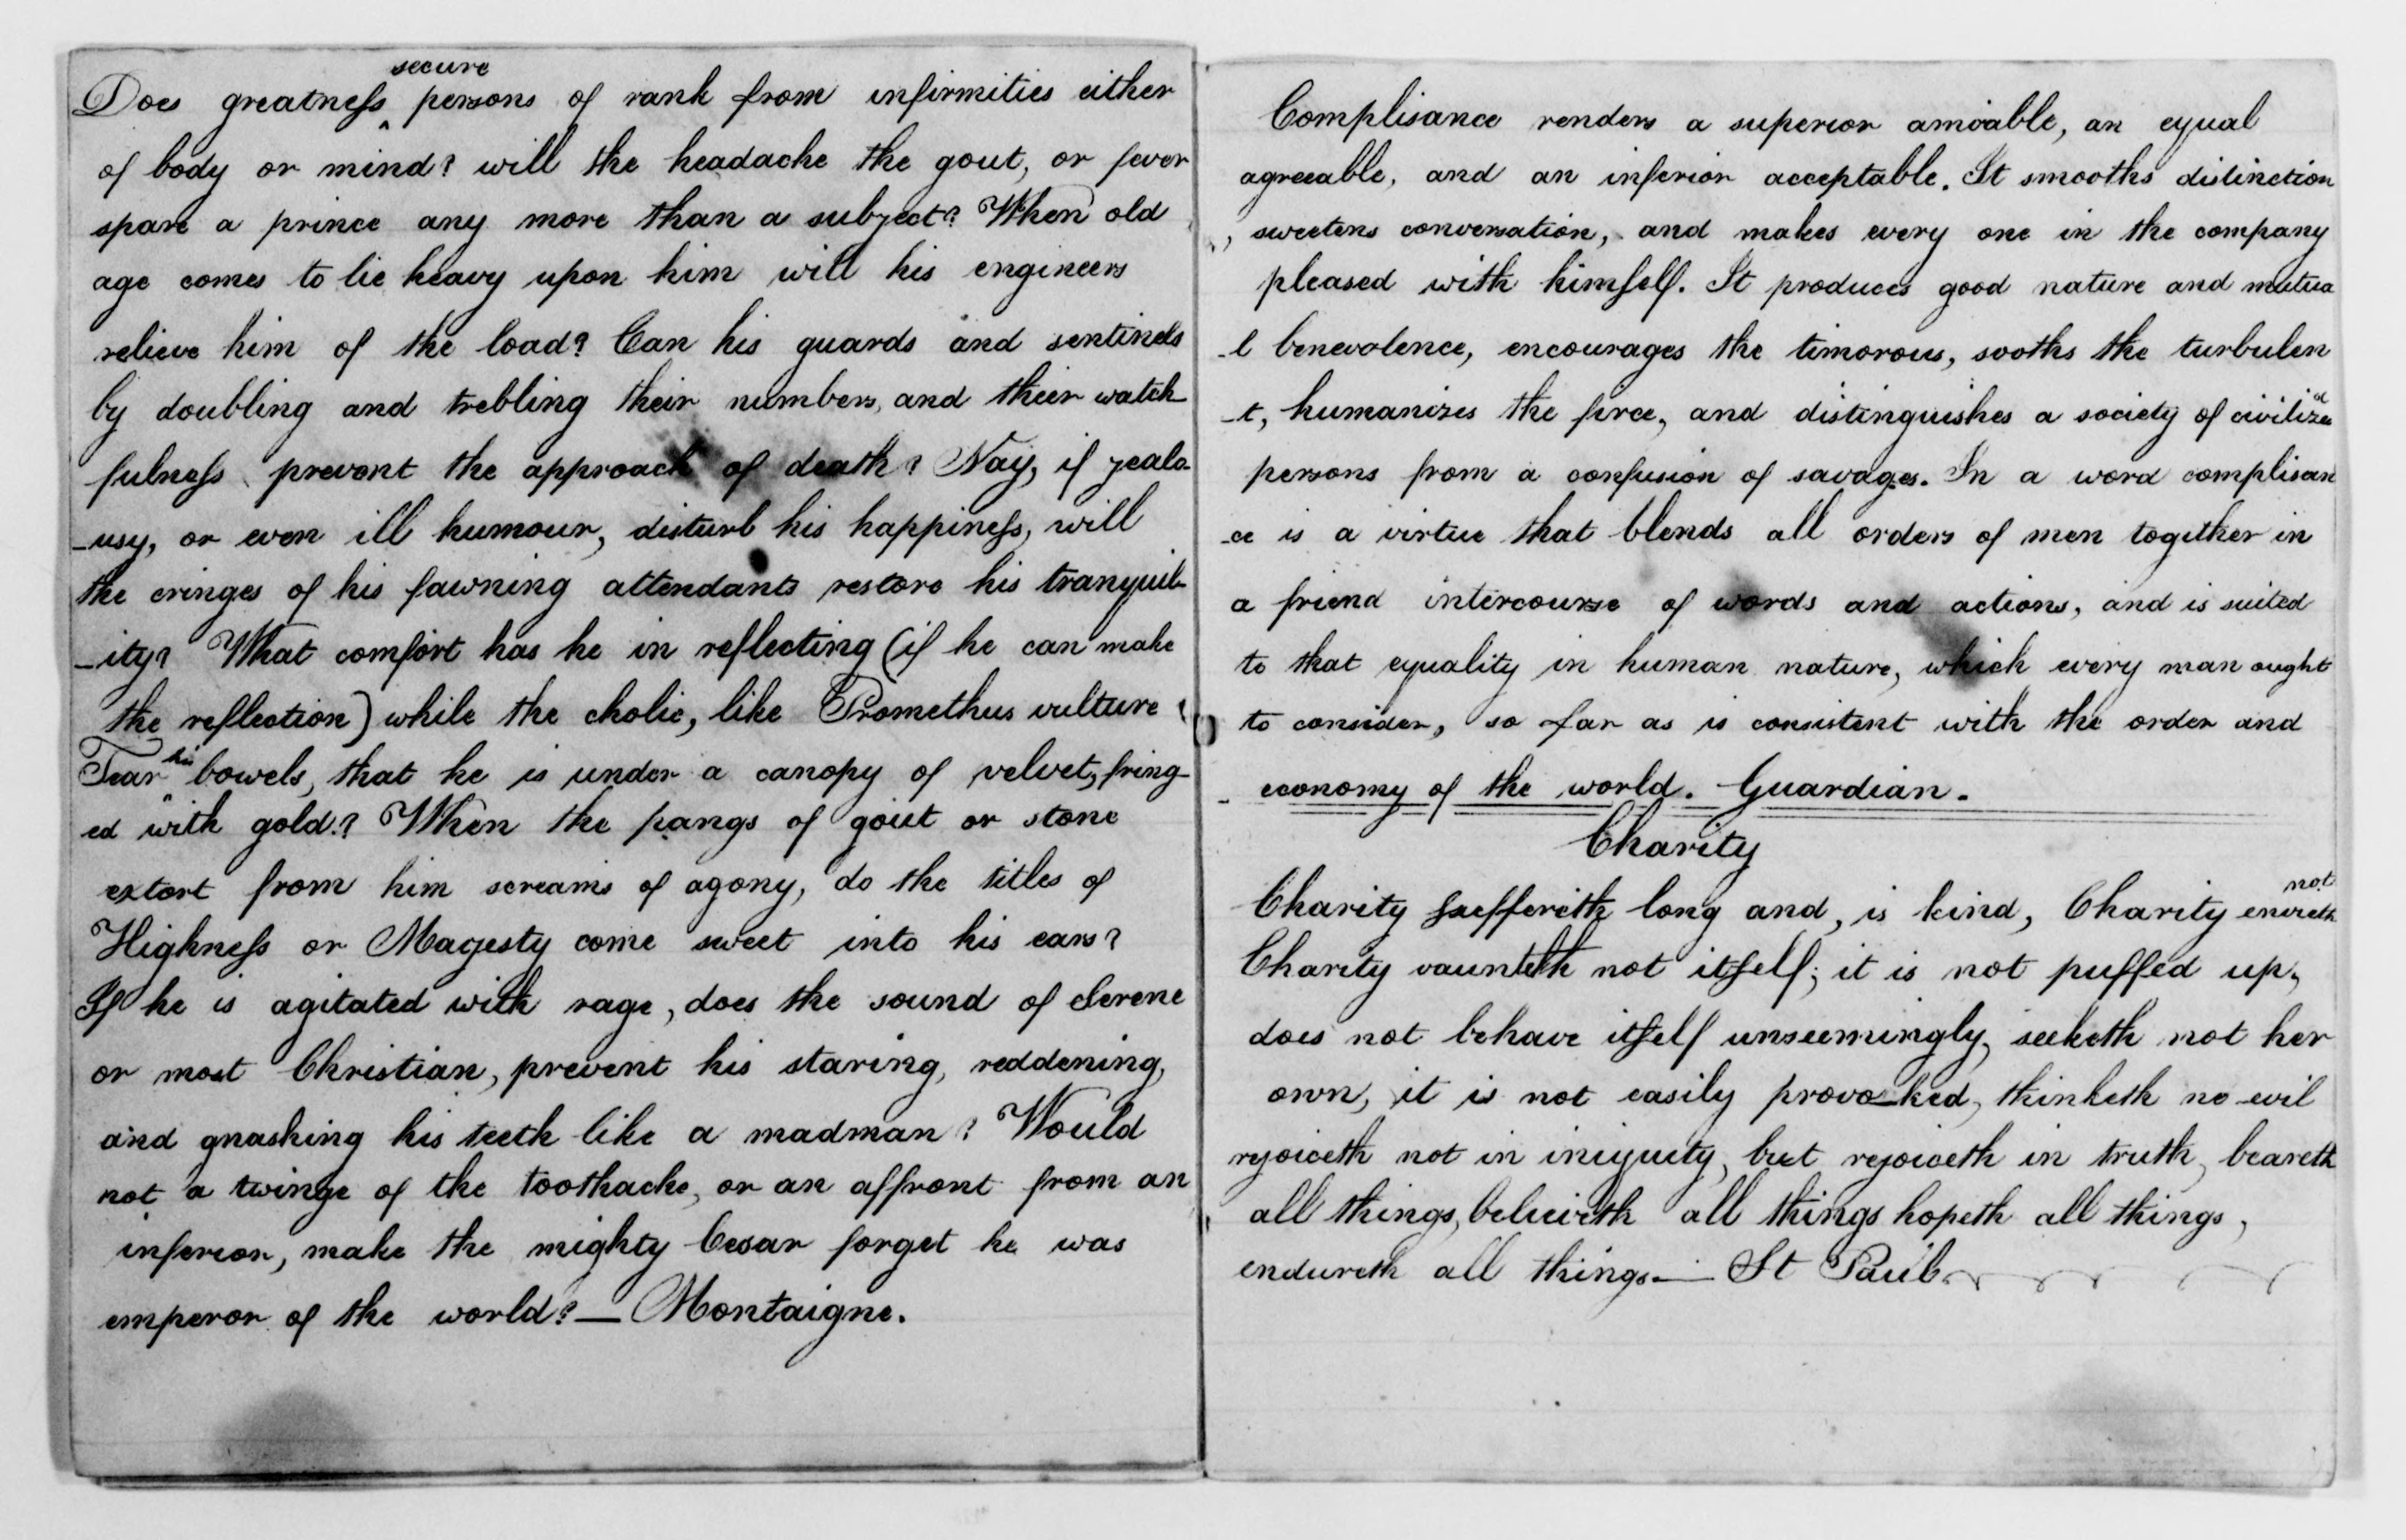 Does greatness secure persons of rank from infirmities either
of body or mind? will the headache the gout, or fever
spare a prince any more than a subject? When old
age comes to lie heavy upon him will his engineers
relieve him of the load? Can his guards and sentinels
by doubling and trebling their numbers, and their watch-
fulness prevent the approach of death? Nay, if jealo-
-usy, or even ill humour, disturb his happiness, will
the cringes of his fawning attendants restore his tranquil-
-ity? What comfort has he in reflecting (if he can make
the reflection) while the cholic, like Promethus vulture
Tear his bowels, that he is under a canopy of velvet, fring-
ed with gold? When the pangs of gout or stone
extort from him screams of agony, do the titles of
Highness or Magesty come sweet into his ears?
If he is agitated with rage, does the sound of Serene
or most Christian, prevent his staring, reddening,
and gnashing his teeth like a madman? Would
not a twinge of the toothache, or an affront from an
inferior, make the mighty Cesar forget he was
emperor of the world?— Montaigne.
Complisance renders a superior amiable, an equal
agreeable, and an inferior acceptable. It smooths distinction
, sweetens conversation, and makes every one in the company
pleased with himself. It produces good nature and mutua
-l benevolence, encourages the timorous, sooths the turbulen
-t, humanizes the firce, and distinguishes a society of civilized
persons from a confusion of savages. In a word complisan
-ce is a virtue that blends all orders of men together in
a friend intercourse of words and actions, and is suited
to that equality in human nature, which every man ought
to consider, so far as is consistent with the order and
economy of the world. Guardian.
Charity
Charity suffereth long and, is kind, Charity envieth not
Charity vaunteth not itself; it is not puffed up,
does not behave itself unseemingly, seeketh not her
own, it is not easily provoked, thinketh no evil
rejoiceth not in iniquity, but rejoiceth in truth, beareth
all things, believeth all things hopeth all things,
endureth all things.— St Paul